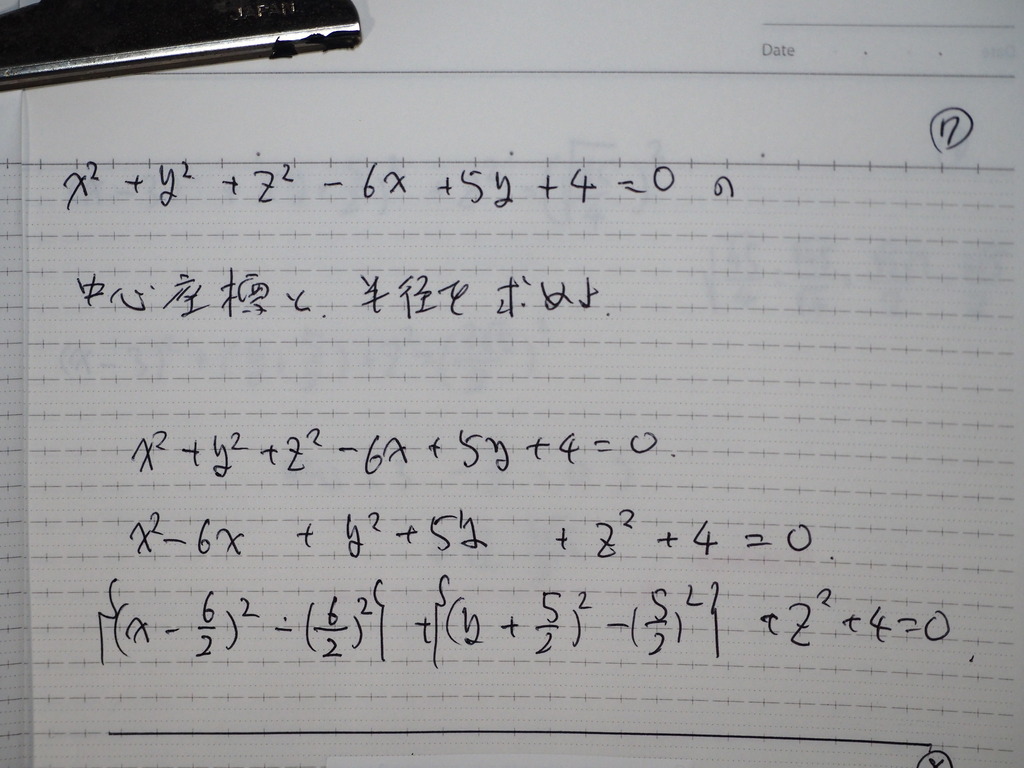 JAPAN
Date
⑰
x² + y² + z² - 6x + 5y + 4 = 0 の
中心座標と、半径を求めよ.
x² + y² + z² - 6x + 5y + 4 = 0.
x² - 6x + y² + 5y + z² + 4 = 0.
{(x - 6/2)² - (6/2)²} + {(y + 5/2)² - (5/2)²} + z² + 4 = 0.